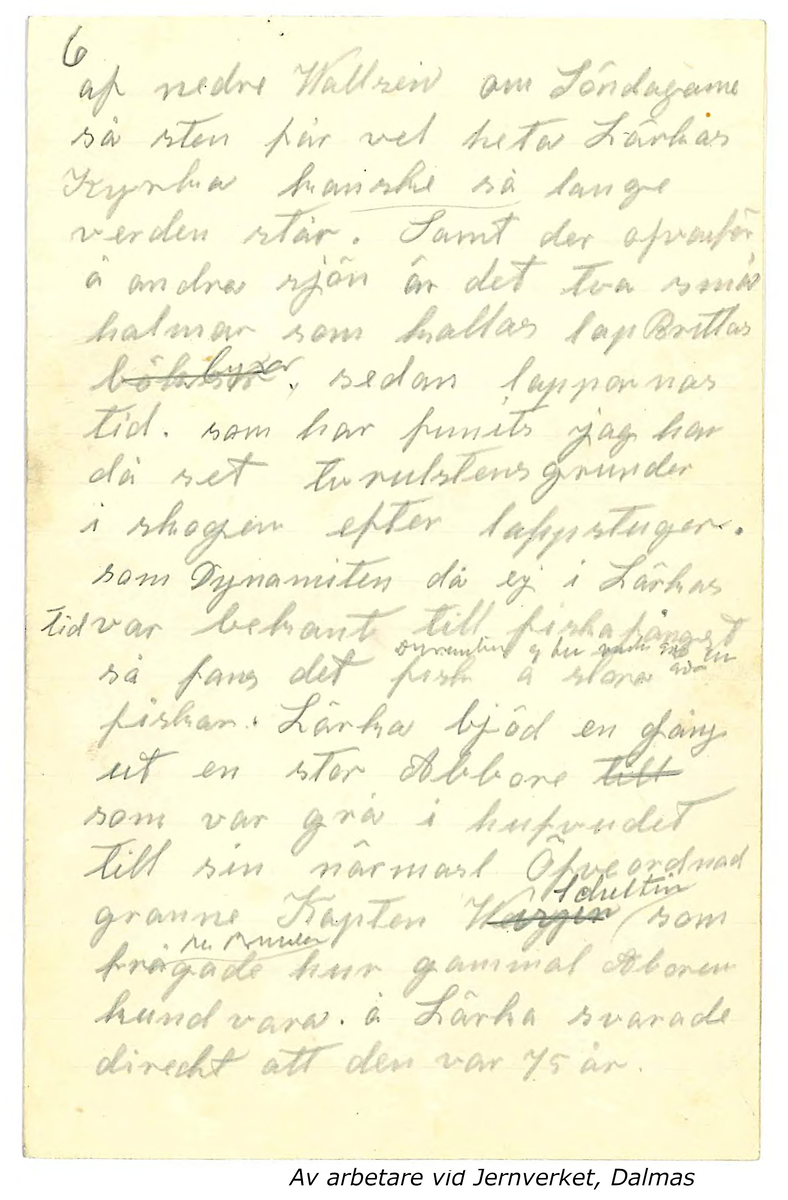 6
af nedre Wallsen om Söndagarne
så sten får vel heta Lärkas
Kyrka kanske så lange
verden står. Samt der ofvanför
å andra sjön är det två små
halmar som kallas lap Brittas
byxor, sedan lapparnas
tid. som har funits jag har
då set tv rulstensgrunder
i skogen efter lappstugor.
som Dynamiten då ej i Lärkas
tid var bekant till fiskafånget
så fans det fisk å stora
fiskar. Lärka bjöd en gång
ut en stor Abbore till
som var grå i hufvudet
till sin närmast Öfveordnad
granne Kapten som
frågade hur gammal Aboren
kund vara. å Lärka svarade
direckt att den var 75 år.
Av arbetare vid Jernverket, Dalmas